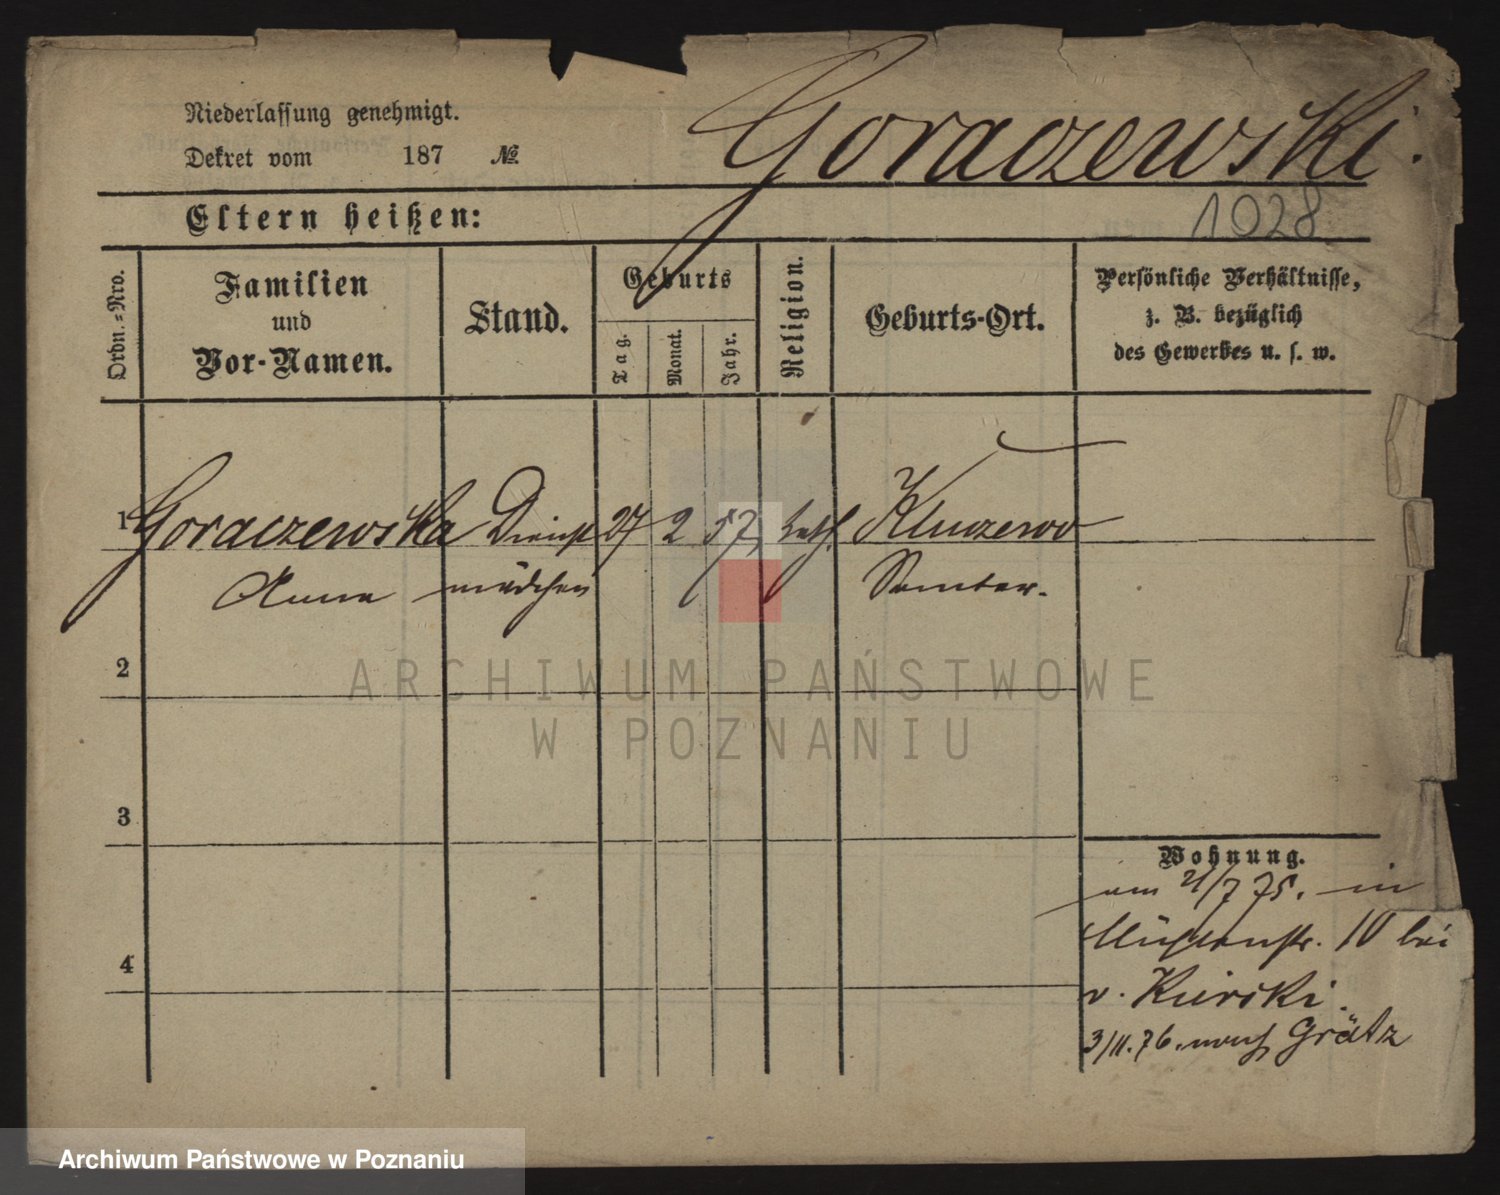 Goraczewski.
Niederlassung genehmigt.
Dekret vom 187 №
1028
Eltern heißen:
Ordn.-Nro.
Familien
und
Vor-Namen.
Stand.
Geburts
Tag.
Monat.
Jahr.
Religion.
Geburts-Ort.
Persönliche Verhältnisse,
z. B. bezüglich
des Gewerbes u. s. w.
1 Goraczewska Dienst 27 2 57, kath. Kluczewo
Anna mädchen Samter.
2
3
4
Wohnung.
am 21/7 75. in
Mühlenstr. 10 bei
v. Kurski.
3/11. 76. nach Grätz
ARCHIWUM PAŃSTWOWE
W POZNANIU
Archiwum Państwowe w Poznaniu